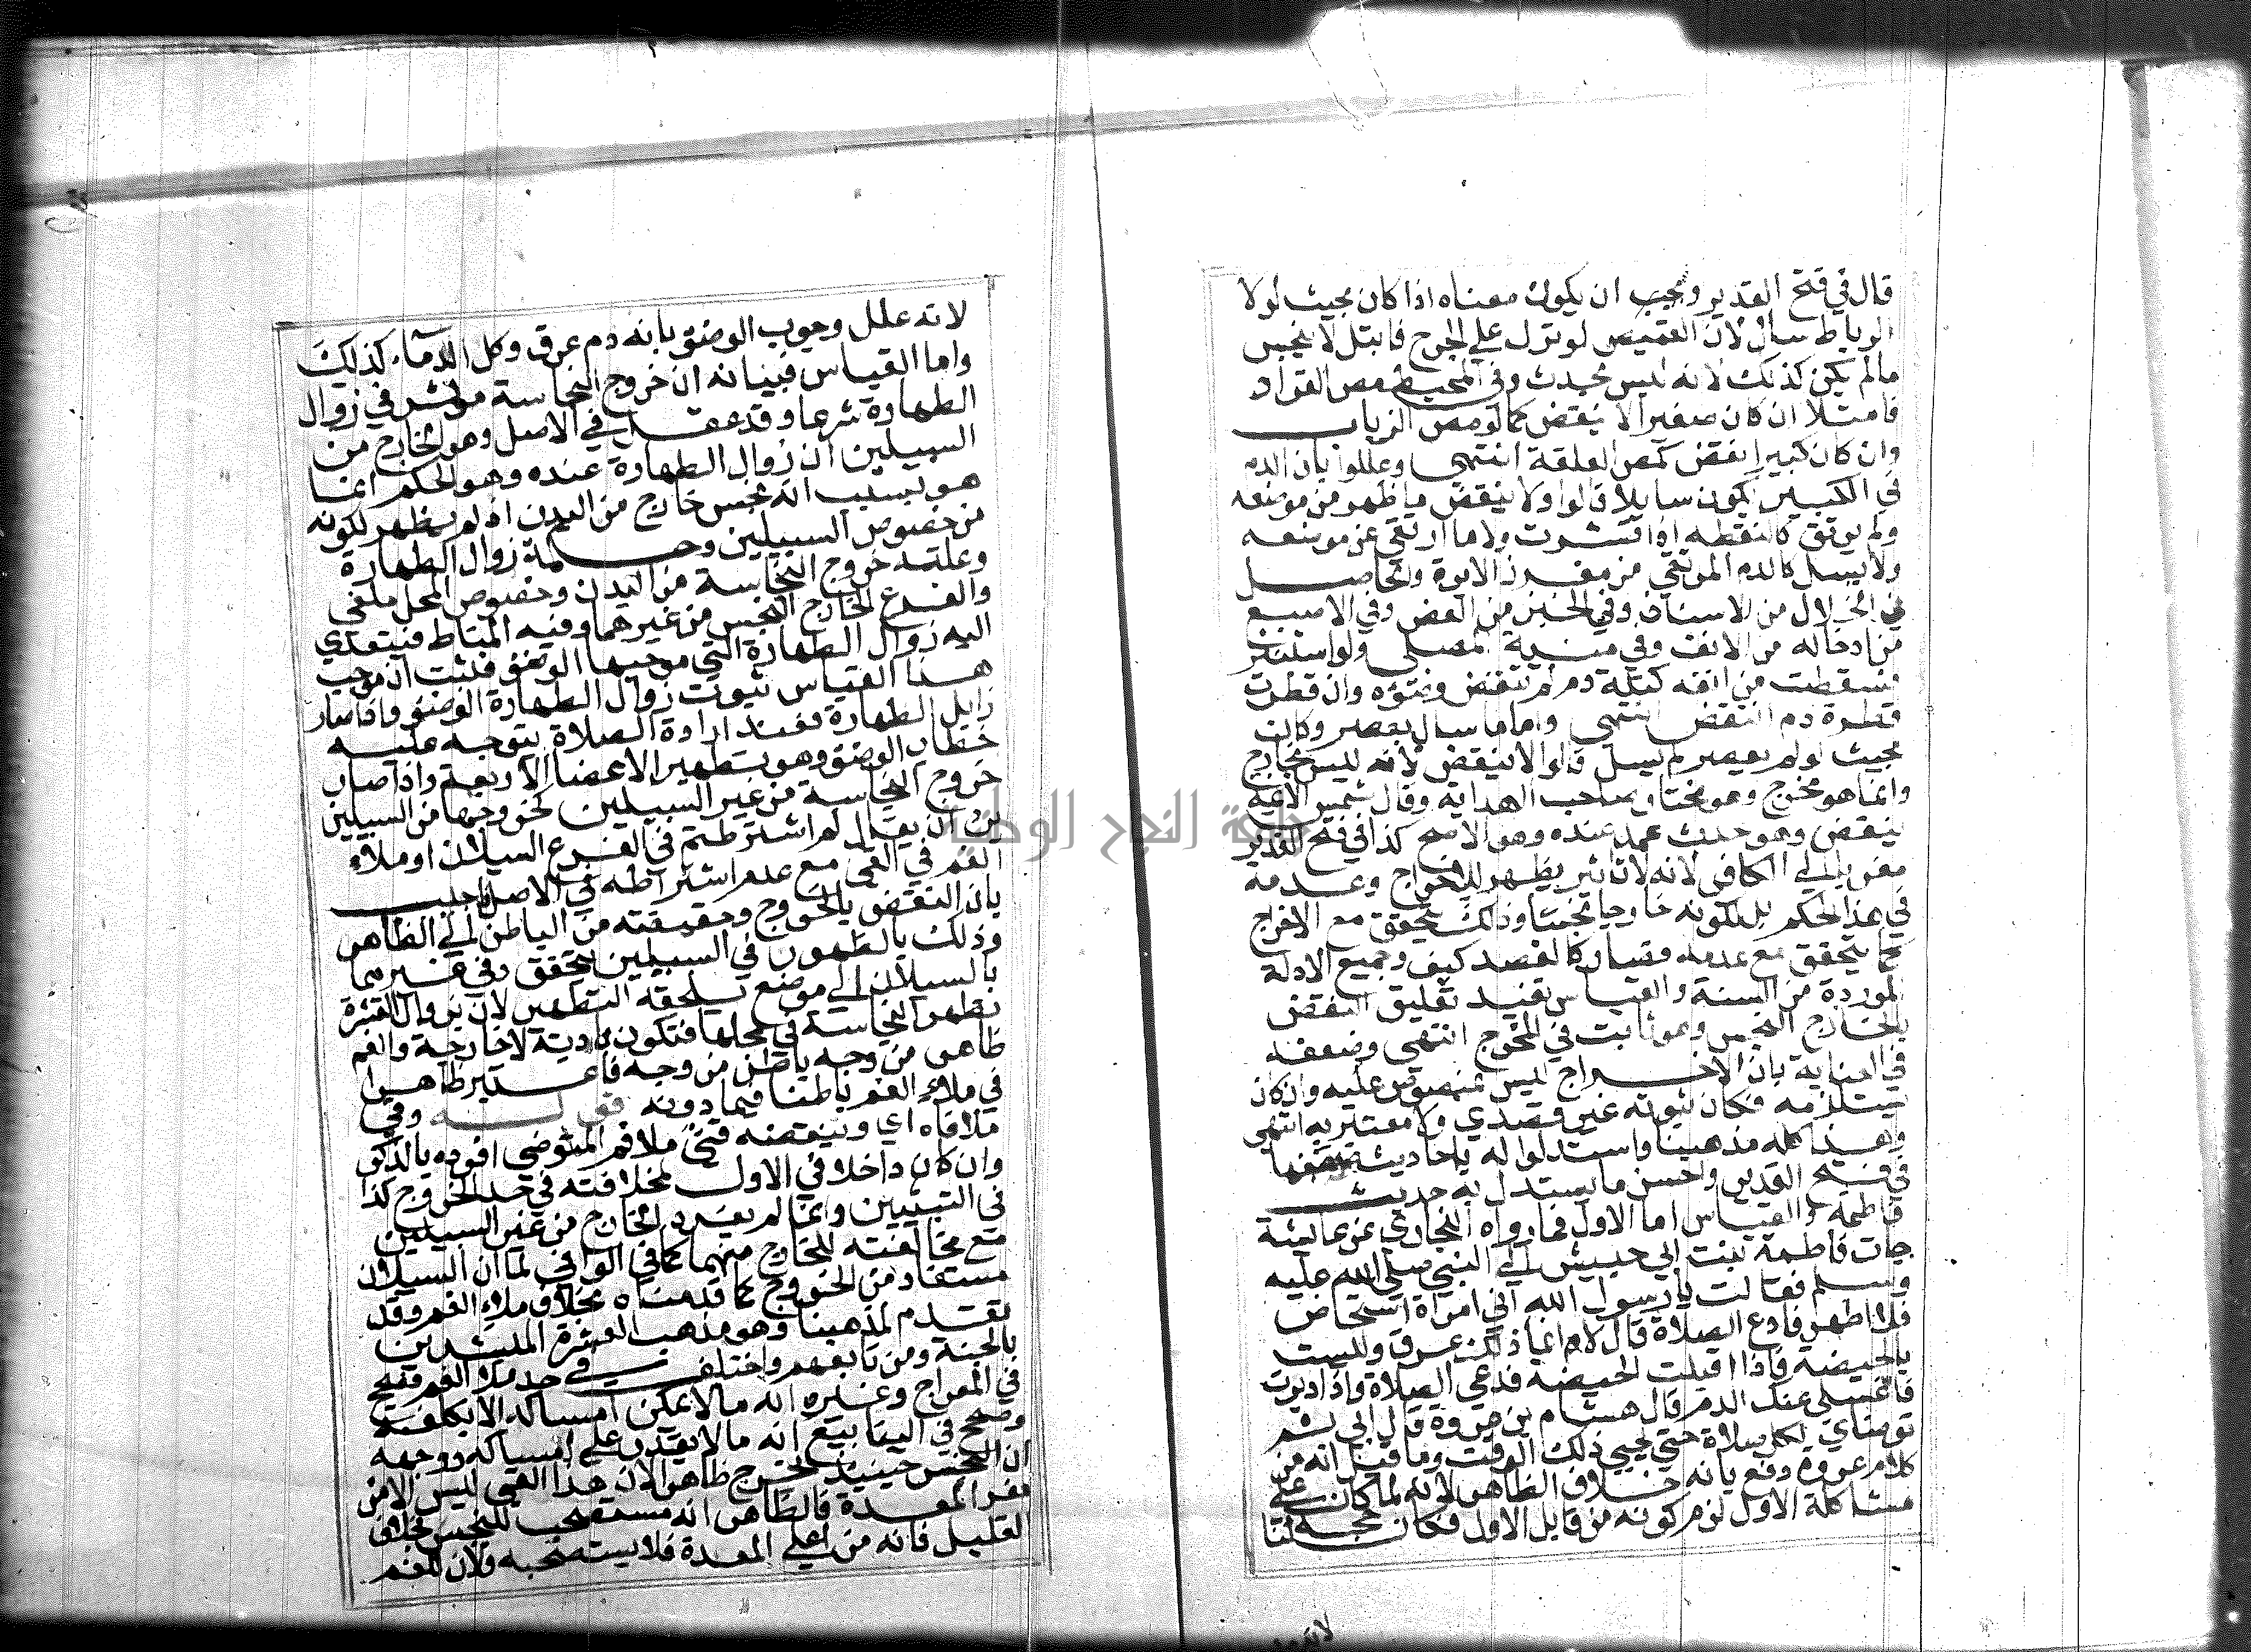 قال في فتح القدير ويجب ان يكون معناه اذا كان بحيث لولا
الرباط سال لان القميص لو نزل علي الجرح فابتل لا ينجس
مالم يكن كذلك لانه ليس بحدث وفي المحيط مص القراد
فامتلا ان كان صغيرا لا ينقض كما لو مص الزباب
وان كان كبيرا نقض كمص العلقة انتهي وعللوا بان الدم
في الكبير يكون سايلا قالوا ولا ينقض ما ظهر من موضعه
ولم يرتق كالنقطه اذا قشرت ولا ما ارتقي عن موضعه
ولا يسل كالدم المرتقي من مغرز الابرة والحاصل
في الخلال من الاسنان وفي الخبز من العض وفي الاصبع
من ادخاله من الانف وفي منية المصلي ولو استنثر
فسقطت من انفه كتلة دم لم تنقض وضؤه وان قطرت
قطرة دم انتقض انتهي واما ما سال بعصر وكان
بحيث لو لم يعصر لم يسل قالوا لا ينقض لانه ليس بخارج
وانما هو مخرج وهو مختار صاحب الهداية وقال شمس الائمة
ينقض وهو حدث عمد عنده وهو الاصح كذا في فتح القدير
معزيا الي الكافي لانه لا تاثير يظهر للاخراج وعدمه
في هذا الحكم بل لكونه خارجا نجسا وذلك يتحقق مع الاخراج
كما يتحقق مع عدمه فصار كالفصد كيف وجميع الادلة
الموردة من السنة والقياس تفيد تعليق النقض
بالخارج النجس وهو ثابت في المخرج انتهي وضعفه
في العناية بان الاخراج ليس بمنصوص عليه وان كان
يستلزمه فكان ثبوته غير قصدي ولا معتبر به انتهي
وهذا كله مذهبنا واستدلوا له باحاديث ضعفها
في فتح القدير واحسن ما يستدل به حديث
فاطمة والقياس اما الاول فما رواه البخاري عن عايشة
جات فاطمة بنت ابي حبيش الي النبي صلي الله عليه
وسلم فقالت يا رسول الله اني امراة استحاض
فلا اطهر فادع الصلاة قال لا انما ذلك عرق وليست
بالحيضه فاذا اقبلت الحيضه فدعي الصلاة واذا ادبرت
فاغسلي عنك الدم قال هشام بن عروة قال ابي ثم
توضاي لكل صلاة حتي يجيي ذلك الوقت وما قيل انه من
كلام عروة دفع بانه خلاف الظاهر لانه لما كان علي
مشاكلة الاول لزم كونه من قايل الاول فكان حجة لنا
لانه علل وجوب الوضؤ بانه دم عرق وكل الدماء كذلك
واما القياس فبيانه ان خروج النجاسة موثر في زوال
الطهارة شرعا وقد عقل في الاصل وهو الخارج من
السبيلين ان زوال الطهارة عنده وهو الحكم انما
هو بسبب انه نجس خارج من البدن اذ لم يظهر لكونه
من خصوص السبيلين وحكمة زوال الطهارة
وعلته خروج النجاسة من البدن وخصوص المحل ملغي
والفرع الخارج النجس من غيرهما وفيه المناط فيتعدي
اليه زوال الطهارة التي موجبها الوضؤ فثبت ان موجب
هذا القياس ثبوت زوال الطهارة الوضؤ واذا صار
زايل الطهارة فعند ارادة الصلاة يتوجه عليه
خطاب الوضؤ وهو تطهير الاعضا الاربعة واذا صار
خروج النجاسة من غير السبيلين كخروجها من السبيلين
يرد ان يقال لم اشترطتم في الفرع السيلان او ملاء
الفم في القي مع عدم اشتراطه في الاصل اجيب
بان النقض بالخروج وحقيقته من الباطن الي الظاهر
وذلك بالظهور في السبيلين يتحقق وفي غيرهما
بالسيلان الي موضع يلحقه التطهير لان بزوال القشرة
تظهر النجاسة في محلها فتكون بادية لا خارجة والفم
ظاهر من وجه باطن من وجه فاعتبر ظاهرا
في ملاء الفم باطنا فيما دونه قوله وقي
ملا فاه اي وينقضه قي ملا فم المتوضي افرده بالذكر
وان كان داخلا في الاول لمخالفته في حد الخروج كذا
في التبيين وانما لم يفرد الخارج من غير السبيلين
مع مخالفته للخارج منهما كما في الوافي لما ان السيلان
مستفاد من الخروج كما قدمناه بخلاف ملاء الفم وقد
تقدم لمذهبنا وهو مذهب العشرة المبشرين
بالجنة ومن تابعهم واختلف في حد ملا الفم فصحح
في المعراج وغيره انه ما لا يمكن امساكه الا بكلفة
وصحح في الينابيع انه ما لا يقدر علي امساكه ووجهه
ان النجس حينيذ يخرج ظاهرا لان هذا القي ليس الا من
قعر المعدة فالظاهر انه مستصحب للنجس بخلاف
القليل فانه من اعلي المعدة فلا يستصحبه ولان للفم
جامعة النجاح الوطنية